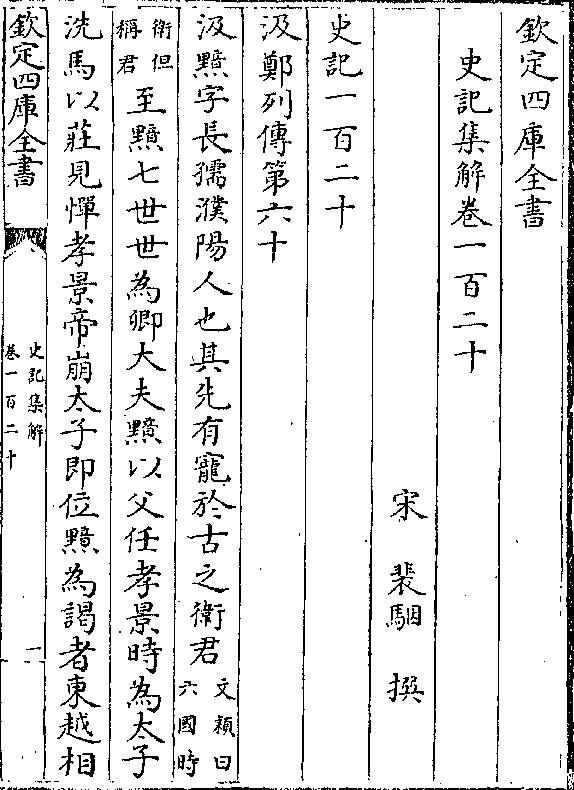 欽定四庫全書
史記集解卷一百二十
宋 裴駰 撰
史記一百二十
汲鄭列傳第六十
汲黯字長孺濮陽人也其先有寵於古之衛君文頴曰六國時
衛但稱君至黯七世世為卿大夫黯以父任孝景時為太子
洗馬以莊見憚孝景帝崩太子即位黯為謁者東越相
欽定四庫全書
史記集解
卷一百二十
一